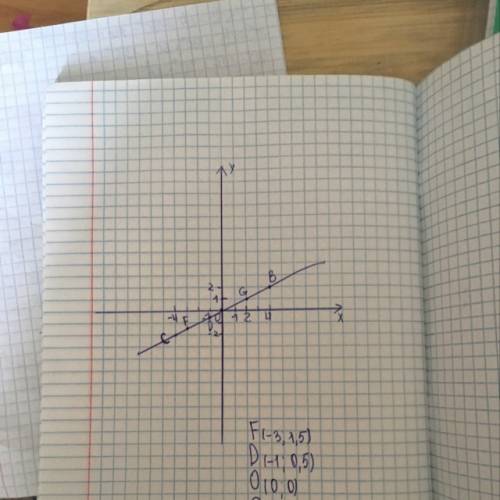 y
B
2
G
1
-4 -1 0 1 2 4 x
F D
-2
C
F(-3; 1,5)
D(-1; 0,5)
O(0; 0)